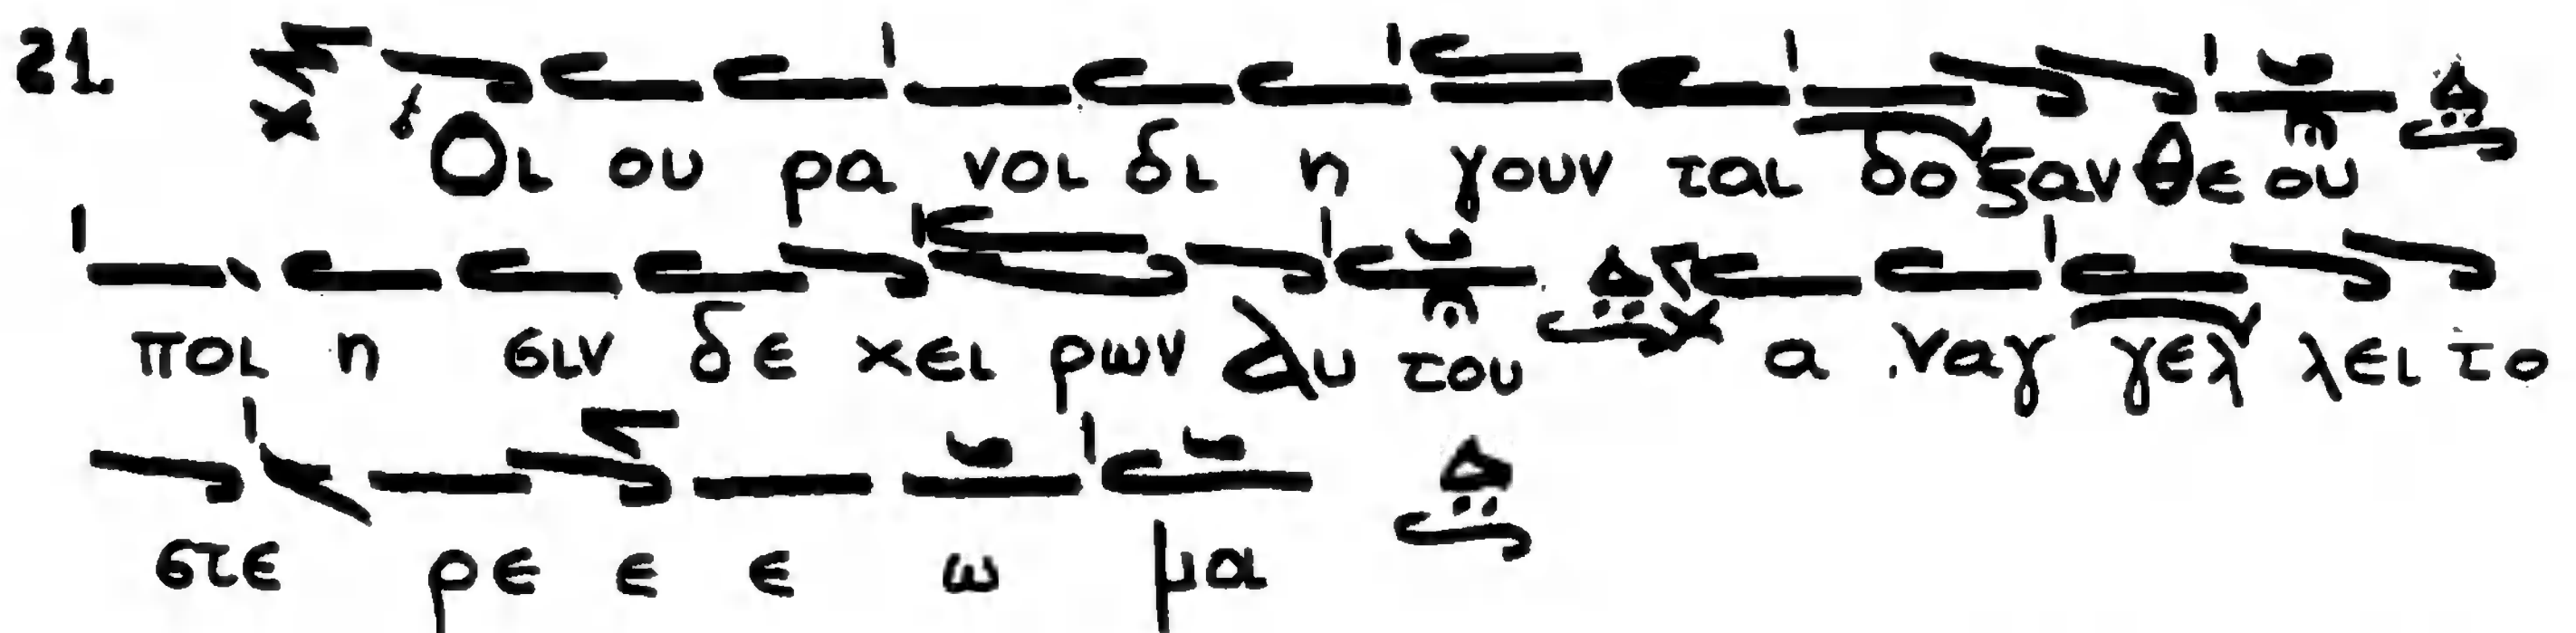 21 Οι ου ρα νοι δι η γουν ται δο ξαν θε ου
ποι η σιν δε χει ρων αυ του α ναγ γελ λει το
στε ρε ε ε ω μα